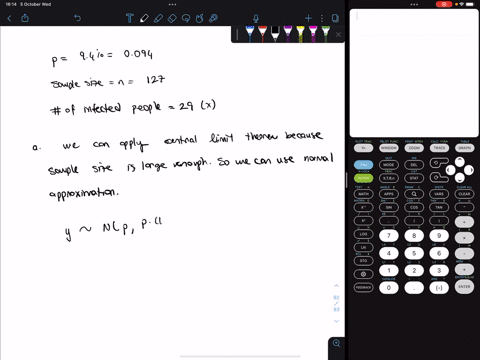 16:14 5 October Wed
p = 9.4% = 0.094
Sample size = n = 127
# of infected people = 29 (x)
a. we can apply central limit theorem because
sample size is large enough. So we can use normal
approximation.
y ~ N(p, p.(1
WINDOW ZOOM TRACE GRAPH
MODE DEL
X,T,θ,n STAT
MATH APPS PRGM VARS CLEAR
SIN COS TAN
LOG 7 8 9
LN 4 5 6
STO 1 2 3
0 . (-) ENTER
FEEDBACK